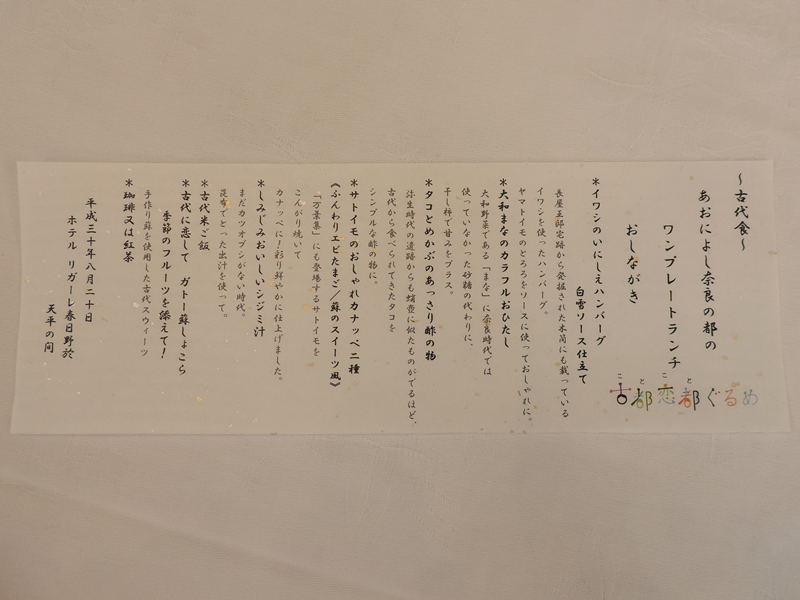 ～古代食～
あおによし奈良の都の
ワンプレートランチ
おしながき
古都恋都ぐるめ
こ と こ と
＊イワシのいにしえハンバーグ
白雪ソース仕立て
長屋王邸宅跡から発掘された木簡にも載っている
イワシを使ったハンバーグ。
ヤマトイモのとろろをソースに使っておしゃれに。
＊大和まなのカラフルおひたし
大和野菜である「まな」に奈良時代では
使っていなかった砂糖の代わりに、
干し柿で甘みをプラス。
＊タコとめかぶのあっさり酢の物
弥生時代の遺跡からも蛸壺に似たものがでるほど、
古代から食べられてきたタコを
シンプルな酢の物に。
＊サトイモのおしゃれカナッペ二種
《ふんわりエビたまご／蘇のスイーツ風》
「万葉集」にも登場するサトイモを
こんがり焼いて
カナッペに！彩り鮮やかに仕上げました。
＊しみじみおいしいシジミ汁
まだカツオブシがない時代。
昆布でとった出汁を使って。
＊古代米ご飯
＊古代に恋して ガトー蘇しょこら
季節のフルーツを添えて！
手作り蘇を使用した古代スウィーツ
＊珈琲又は紅茶
平成三十年八月二十日
ホテル リガーレ春日野於
天平の間